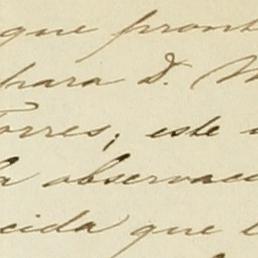 que pront
para D. M
Torres; este
la observac
cida que l